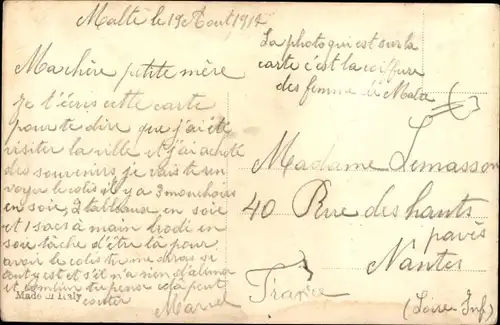 Malte le 19 Aout 1914
La photo qui est sur la
carte c'est la coiffure
des femme de Malte
Ma chère petite mère
je t'écris cette carte
pour te dire que j'ai été
visiter la ville et j'ai acheté
des souvenirs je vais te ren
voyer le colis il y a 3 mouchoirs
en soie, 2 tableaux en soie
et 1 sacs à main brodé en
soie tâche d'être là pour
avoir le colis tu me diras si
tout y est et s'il n'a rien d'abimé
et combien tu pense cela peut
couter
Marcel
Madame Lemasson
40 Rue des hauts
pavés
Nantes
France
(Loire Inf)
Made in Italy